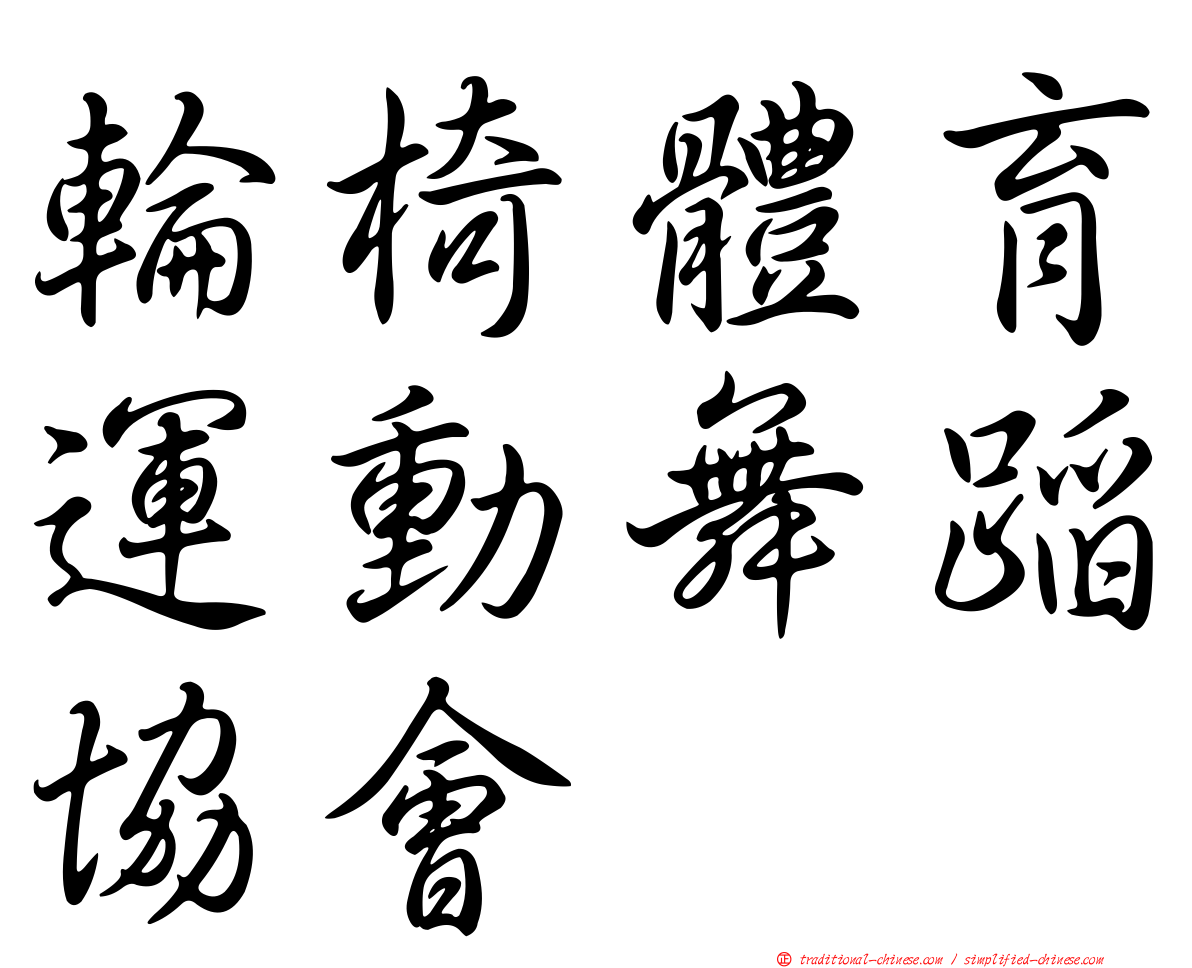 輪椅體育
運動舞蹈
協會
正 traditional-chinese.com / simplified-chinese.com